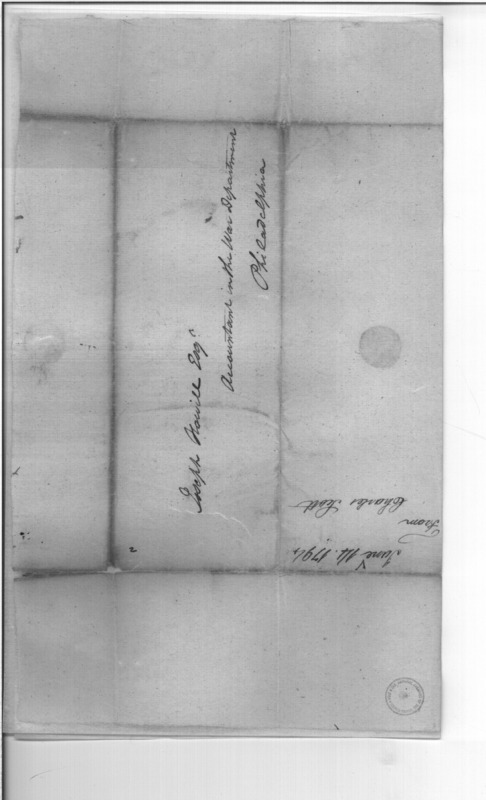 Joseph Howell Esqr
Accountant in the War Department
Philadelphia
From
Charles Scott